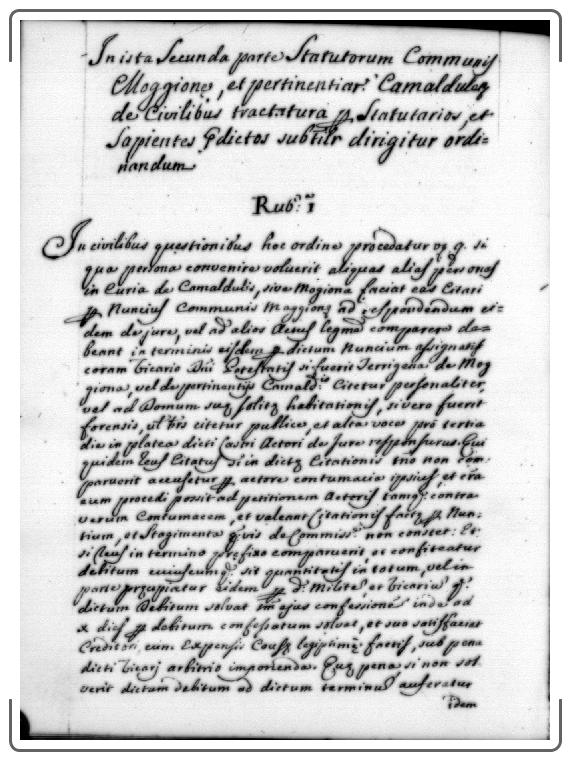 In ista Secunda parte Statutorum Communis
Moggionę, et pertinentiar: Camaldulen
de Civilibus tractatura p Statutarios, et
Sapientes pdictos subtilr dirigitur ordi=
nandum
Rub.ca 1
In civilibus questionibus hoc ordine procedatur vz q. si
qua persona convenire voluerit aliquas alias personas
in Curia de Camaldulis, sive Mogiona faciat eas Citari
p Nuncius Communis Maggionę ad respondendum ei=
dem de jure, vel ad alios Actus comparere de=
beant in terminis eisdem p dictum Nuncium assignatis
coram Vicario Dni Potestatis si fuerit Terrigena de Mog
giona, vel de pertinentijs Camald: Citetur personaliter,
vel ad Domum suę solitę habitationis, si vero fuerit
forensis, citetur publice, et alta voce pro tertia
die in platea dicti Castri Actori de Jure responsurus. Qui
quidem Reus Citatus si in dictę Citationis tno non com
paruerit accusetur p actore contumacia ipsius, et
eum procedi possit ad petitionem Actoris tamq: contra
verum Contumacem, et valeant Citationis factę p Nun=
tium, et Stagimenta qvis de Commiss: non constet: Et
si Reus in termino pręfixo comparuerit et confiteatur
debitum cuiuscumq: sit quantitatis in totum, vel in
parte pręcipiatur eidem p d: Milite et Vicario q:
dictum Debitum solvat ejus confessione inde ad
x dies p debitum confessatum solvat, et suo satisfaciat
Creditori, cum Expensis legiptimę factis, sub pena
dicti Vicarij arbitrio imponenda. Quę pena si non sol
verit dictum debitum ad dictum terminu auferatur
idem